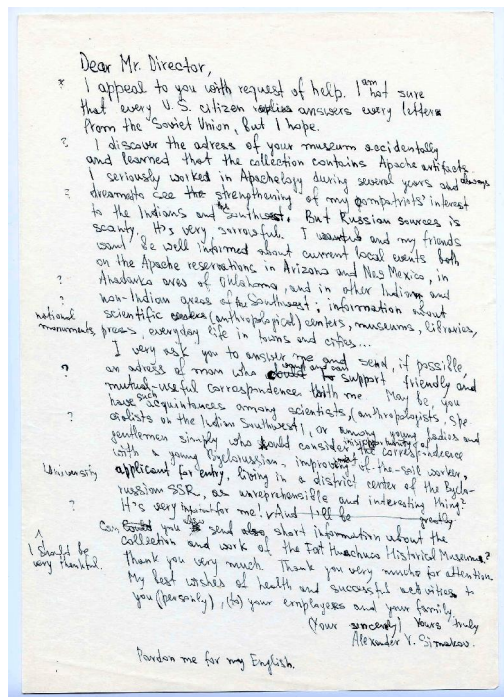 Dear Mr. Director,
? I appeal to you with request of help. I am not sure
that every U.S. citizen answers every letter
from the Soviet Union, but I hope.
? I discover the adress of your museum accidentally
and learned that the collection contains Apache artifacts.
I seriously worked in Apachelogy during several years and always
? dream to see the strengthening of my compatriots' interest
to the Indians and the Southwest. But Russian sources is
scanty, it's very sorrowful. I want and my friends
want be well informed about current local events both
on the Apache reservations in Arizona and New Mexico, in
? Anadarko area of Oklahoma, and in other Indian and
? non-Indian areas of the Southwest; information about
national scientific (anthropological) centers, museums, libraries,
monuments, press, everyday life in towns and cities...
I very ask you to answer me and send, if possible,
? an adress of mom who want and can to support friendly and
mutual-useful correspondence with me. May be, you
have such acquintances among scientists, (anthropologists, spe-
? cialists on the Indian Southwest), or among young ladies and
gentlemen simply who would consider the correspondence
with a young Byelorussian, improving of-the-soil worker,
University applicant for entry, living in a district center of the Byelo-
russian SSR, as unreprehensible and interesting thing?
? It's very important for me! And I'll be greatly
Can you also send short information about the
I should be collection and work of the Fort Huachuca Historical Museum?
very thankful. Thank you very much. Thank you very much for attention.
My best wishes of health and successful activities to
you (personly), (to) your employees and your family.
(Your sincerely) Yours truly
Alexander V. Simakov.
Pardon me for my English.